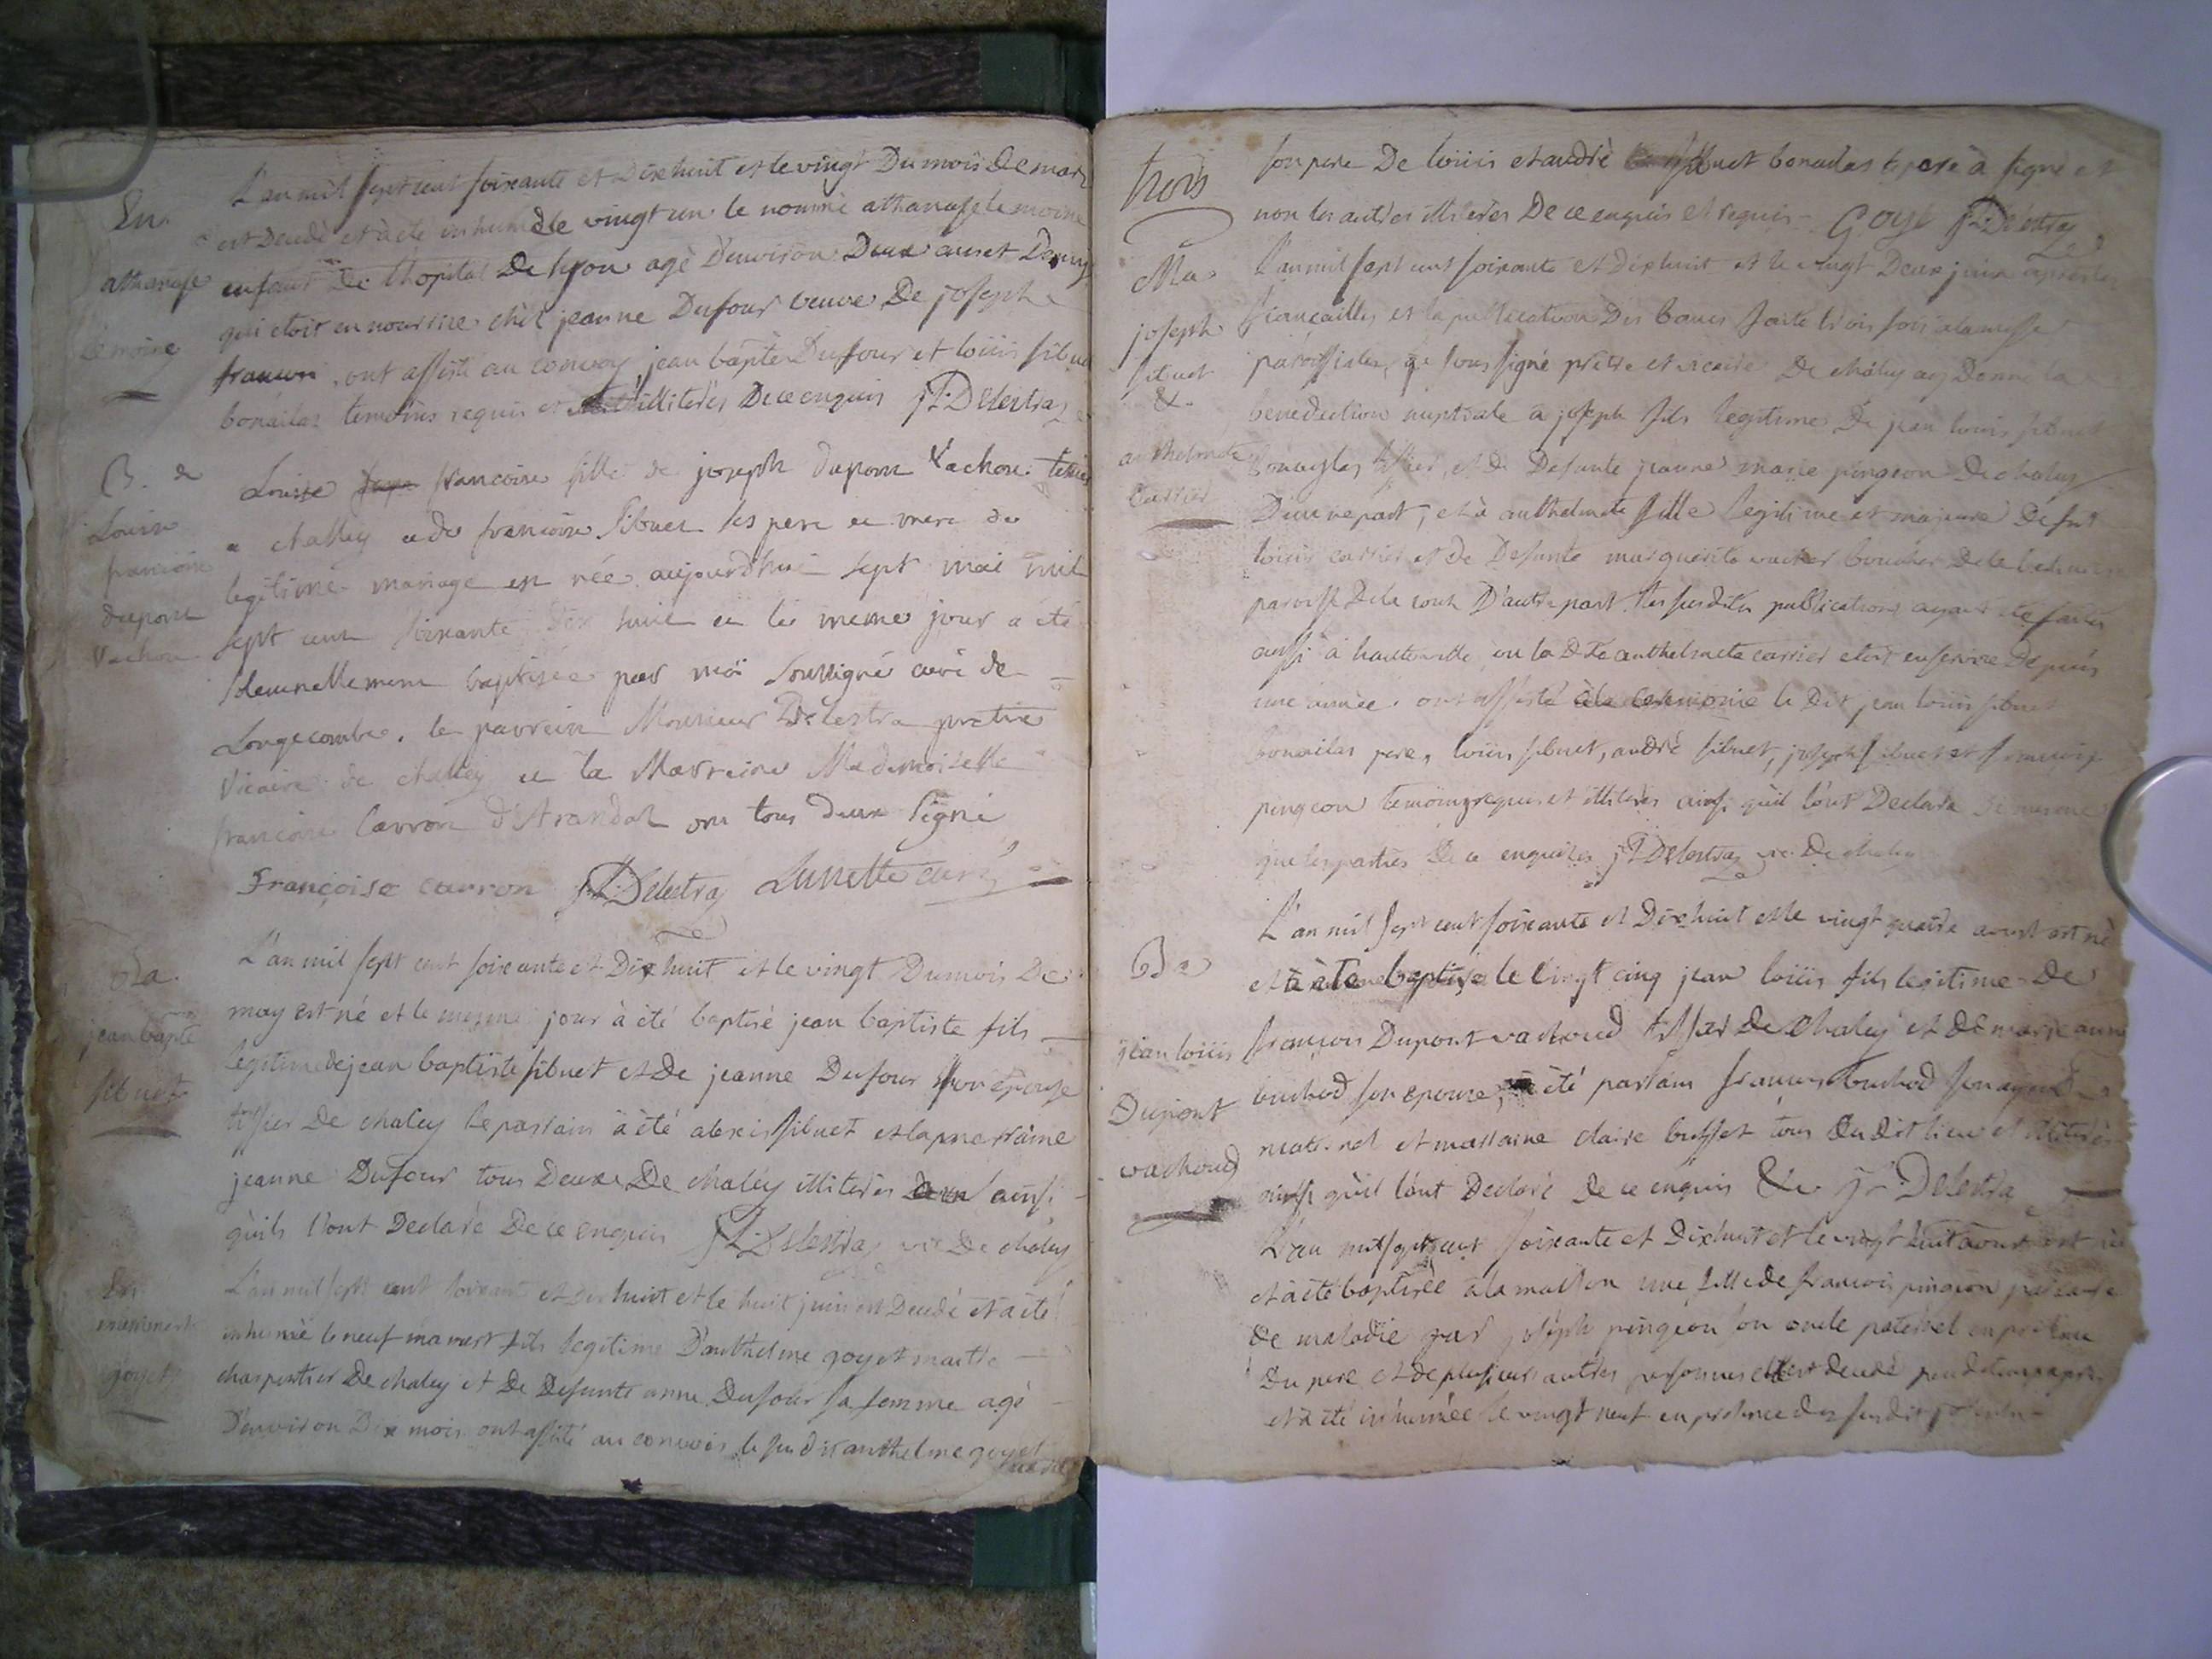 En.
athanase
Lemoine
L'an mil sept cent soixante et Dixhuit et le vingt Du mois De mars
est Decedé et à été inhumé le vingt un le nommé athanase le moine
enfant De L'hopital De lyon agé D'environ Deux ans et Demy
qui etoit en nourrice chéz jeanne Dufour veuve De joseph
francon, ont assisté au convoy jean bapte Dufour et loüis sibuet
bonailas temoins requis et illiterés De ce enquis JL: Delestraz
B. de
Louise
francoise
dupont
Vachon
Louise francoise fille de joseph dupont Vachon tissier
a challey et de francoise Sibuet ses pere et mere de
legitime mariage est née aujourdhui sept mai mil
sept cent soixante dix huit et le meme jour a été
solennellement baptisée par moi soussigné curé de
Longecombe. le parrein Monsieur Delestra pretre
Vicaire de challey et la Marreine Mademoiselle
francoise Carron d'Arandaz ont tous deux Signé
Françoise carron JL: Delestraz Lunette curé
Ba.
jean bapte
sibuet
L'an mil sept cent soixante et Dixhuit et le vingt Du mois De
may est né et le mesme jour à été baptisé jean baptiste fils
legitime de jean baptiste sibuet et De jeanne Dufour son épouse
tissier De chaley le parrain à été alexis sibuet et la marraine
jeanne Dufour tous Deux De chaley illiterés ainsi
qu'ils l'ont Declaré De ce enquis JL: Delestraz vic De chaley
En
mammert
goyet
L'an mil sept cent soixante et Dixhuit et le huit juin est Decedé et à été
inhumé le neuf mamert fils legitime D'anthelme goyet maitre
charpentier De chaley et De Defunte anne Dufour sa femme agé
D'environ Dix mois ont assisté au convois le susdit anthelme goyet
trois
son pere De loüis et andré sibuet bonailas le pere à signé et
non les autres illiterés De ce enquis et requis Goyet JL: Delestraz
Ma.
joseph
sibuet
&
anthelmete
Carrier
L'an mil sept cent soixante et Dixhuit et le vingt Deux juin après les
fiancailles et la publication Des bancs faite trois fois a la messe
paroissiale, je soussigné prêtre et vicaire De chaley ay Donné la
benediction nuptiale a joseph fils legitime De jean louis sibuet
bonaylas tissier, et De Defunte jeanne marie pingeon De chaley
D'une part, et à anthelmete fille legitime et majeure De fut
loüis carrier et de Defunte marguerite boucher De
paroisse De la D'autre part. les susdites publications ayant été faites
aussi à hauteville ou la D.te anthelmete carrier etoit en service Depuis
une année. ont assisté à la ceremonie le Dit jean loüis sibuet
bonailas pere, loüis sibuet, andré sibuet, joseph sibuet et francois
pingeon temoins requis et illiterés ainsi qu'il l'ont Declaré de mesme
que les parties De ce enquises JL: Delestraz vic: De chaley
Ba
jean loüis
Dupont
vachoud
L'an mil sept cent soixante et Dixhuit et le vingt quatre aoust est né
et à été baptisé le vingt cinq jean loüis fils legitime De
francois Dupont vachoud tissier De chaley et De marie anne
buchod son epouse, à été parrain francois buchod son ayeul
maternel et marraine claire busset tous Du Dit lieu et illiterés
ainsi qu'il l'ont Declaré De ce enquis &c JL: Delestra
L'an mil sept cent soixante et Dixhuit et le vingt huit aoust est née
et à été baptisée à la maison une fille de francois pingeon par cause
De maladie par joseph pingeon son oncle paternel en presence
Du pere et de plusieurs autres personnes elle est decedé peu de temps après
et à été inhumée le vingt neuf en presence des susdit joseph